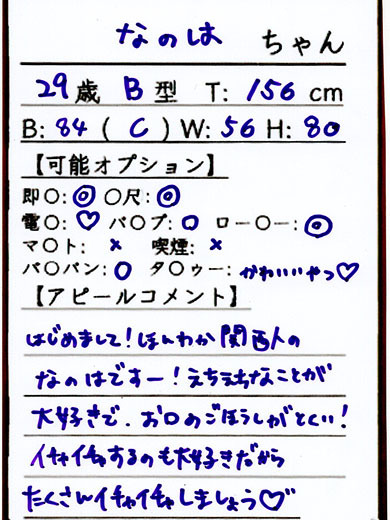 なのは ちゃん
29歳 B型 T: 156 cm
B: 84 ( C ) W: 56 H: 80
【可能オプション】
即〇: ◎ 〇尺: ◎
電〇: ♡ バ〇ブ: 〇 ロー〇ー: ◎
マ〇ト: × 喫煙: ×
パ〇パン: 〇 タ〇ゥー: かわいいやつ♡
【アピールコメント】
はじめまして!ほんわか関西人の
なのはですー!えちえちなことが
大好きで、お口のごほうしがとくい!
イチャイチャするのも大好きだから
たくさんイチャイチャしましょう♡